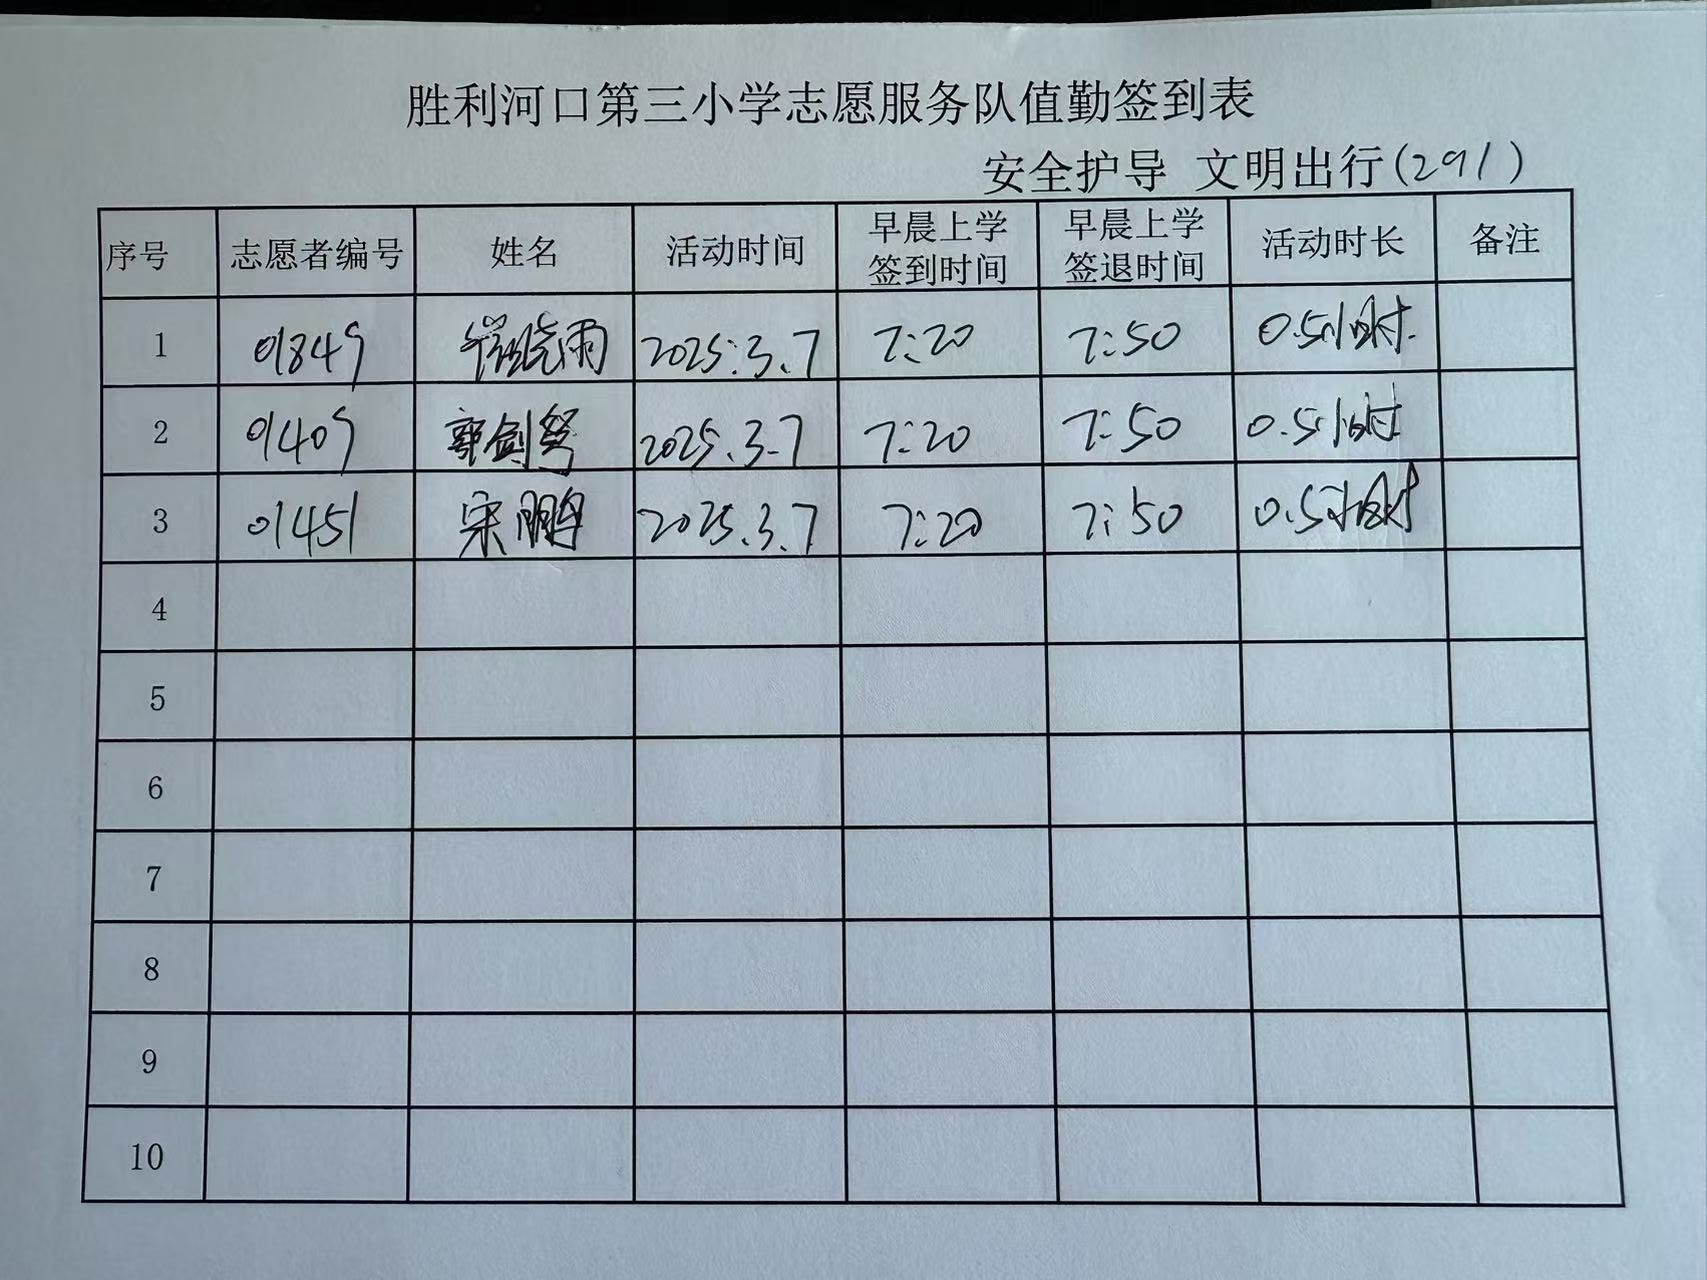 胜利河口第三小学志愿服务队值勤签到表
安全护导 文明出行(291)
序号 志愿者编号 姓名 活动时间 早晨上学签到时间 早晨上学签退时间 活动时长 备注
1 01849 崔晓雨 2025.3.7 7:20 7:50 0.5小时
2 01409 郭剑 2025.3.7 7:20 7:50 0.5小时
3 01451 宋鹏 2025.3.7 7:20 7:50 0.5小时
4
5
6
7
8
9
10